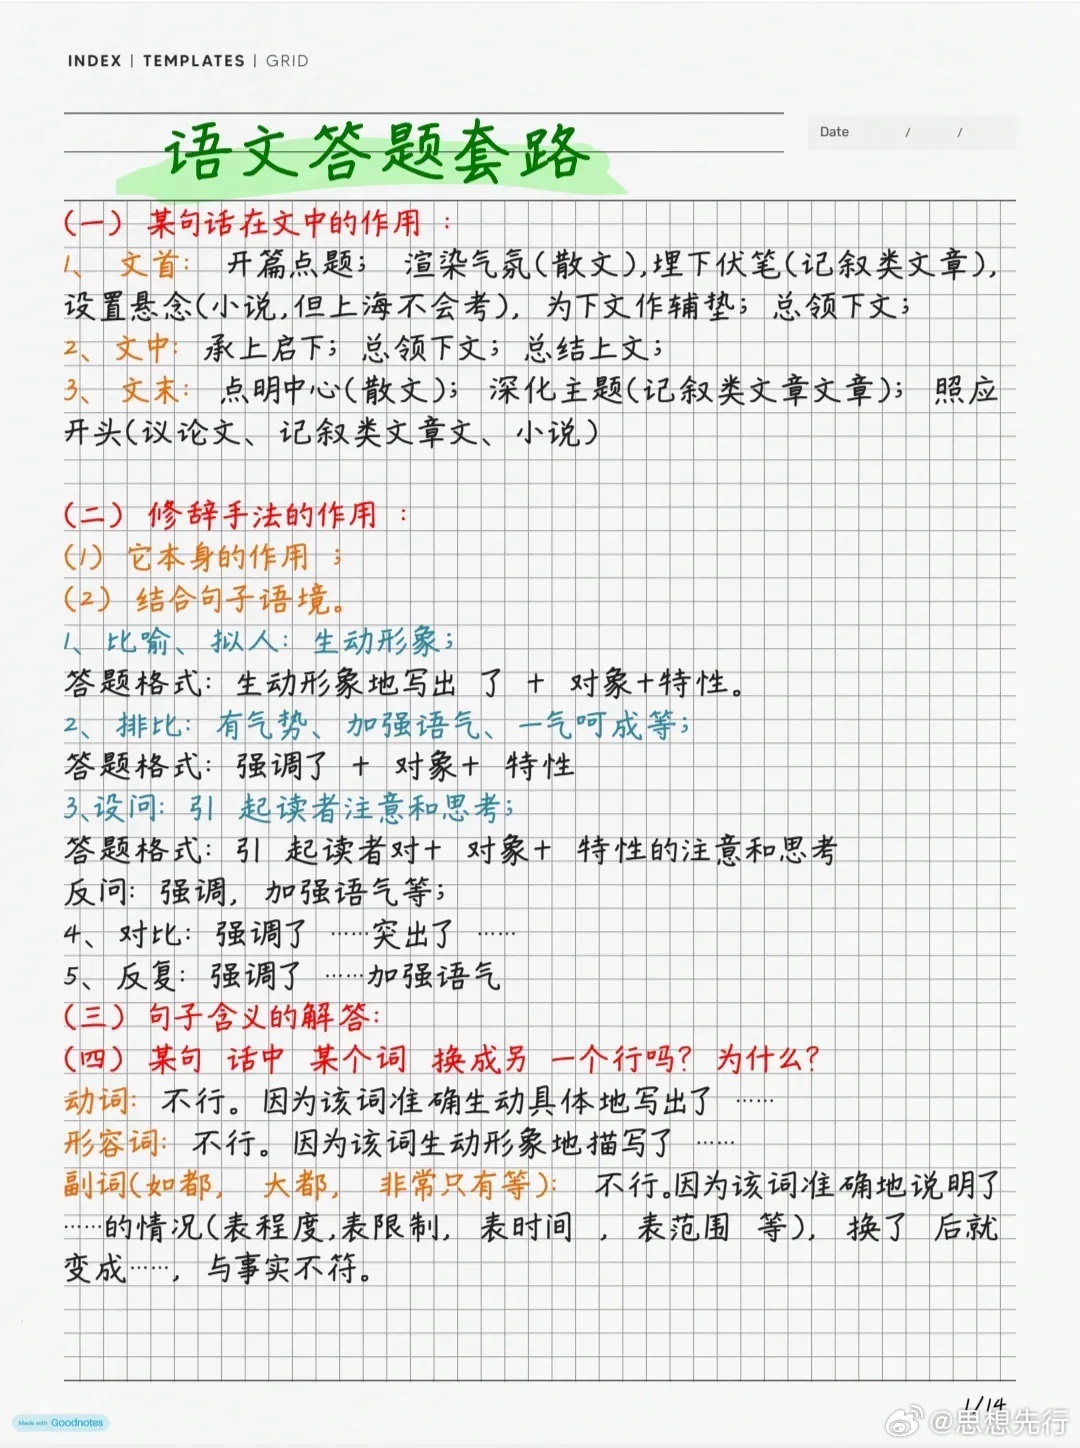 INDEX | TEMPLATES | GRID
Date / /
语文答题套路
(一) 某句话在文中的作用 :
1、 文首: 开篇点题; 渲染气氛(散文),埋下伏笔(记叙类文章),
设置悬念(小说,但上海不会考), 为下文作辅垫; 总领下文;
2、文中: 承上启下; 总领下文; 总结上文;
3、 文末: 点明中心(散文); 深化主题(记叙类文章文章); 照应
开头(议论文、记叙类文章文、小说)
(二) 修辞手法的作用 :
(1) 它本身的作用 ;
(2) 结合句子语境。
1、比喻、拟人: 生动形象;
答题格式: 生动形象地写出 了 + 对象+特性。
2、排比: 有气势、加强语气、一气呵成等;
答题格式: 强调了 + 对象+ 特性
3、设问: 引 起读者注意和思考;
答题格式: 引 起读者对+ 对象+ 特性的注意和思考
反问: 强调, 加强语气等;
4、对比: 强调了 ……突出了 ……
5、反复: 强调了 ……加强语气
(三) 句子含义的解答:
(四) 某句 话中 某个词 换成另 一个行吗? 为什么?
动词: 不行。因为该词准确生动具体地写出了 ……
形容词: 不行。因为该词生动形象地描写了 ……
副词(如都, 大都, 非常只有等): 不行。因为该词准确地说明了
……的情况(表程度,表限制, 表时间 , 表范围 等), 换了 后就
变成……, 与事实不符。
1/14
Made with Goodnotes
@思想先行